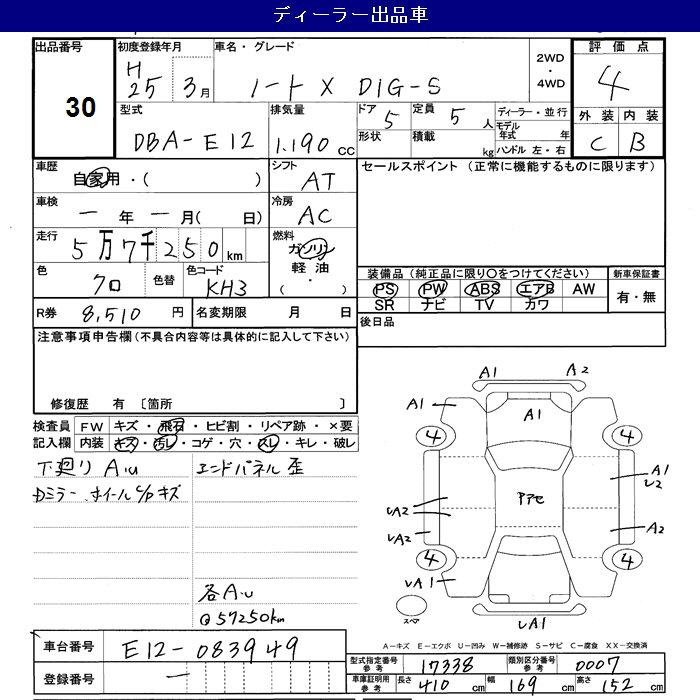 ディーラー出品車
出品番号 30
初度登録年月 H25 3月
車名・グレード ノート X DIG-S
2WD・4WD
評価点 4
外装 C 内装 B
型式 DBA-E12
排気量 1.190 cc
ドア 5 形状
定員 5 人 積載 kg
ディーラー・並行
モデル年式 年 式
ハンドル 左・右
車歴 自家用・( )
シフト AT
車検 一 年 一 月( 日)
冷房 AC
走行 5万7千250 km
燃料 ガソリン 軽油 ( ・ )
色 クロ 色替 色コード KH3
R券 8,510 円
名変期限 月 日
セールスポイント (正常に機能するものに限ります)
装備品(純正品に限り〇をつけてください)
PS PW ABS エアB AW
SR ナビ TV カワ
新車保証書 有・無
後日品
注意事項申告欄(不具合内容等は具体的に記入して下さい)
修復歴 有 〔箇所 〕
検査員記入欄
FW キズ・飛石・ヒビ割・リペア跡・×要
内装 キズ・汚レ・コゲ・穴・スレ・キレ・破レ
下廻り A.u
エンドパネル歪
Dミラー ホイールC/P キズ
各A.u
@57250km
A1 A2
A1 A1
4 4
A1
U2
アアセ
UA2
UA2 A2
4 4
UA1
スペア UA1
A-キズ E-エクボ U-凹み W-補修跡 S-サビ C-腐食 XX-交換済
車台番号 E12-083949
登録番号 一
型式指定番号 参考 17338
類別区分番号 参考 0007
車庫証明用 参考 長さ 410 cm 幅 169 cm 高さ 152 cm